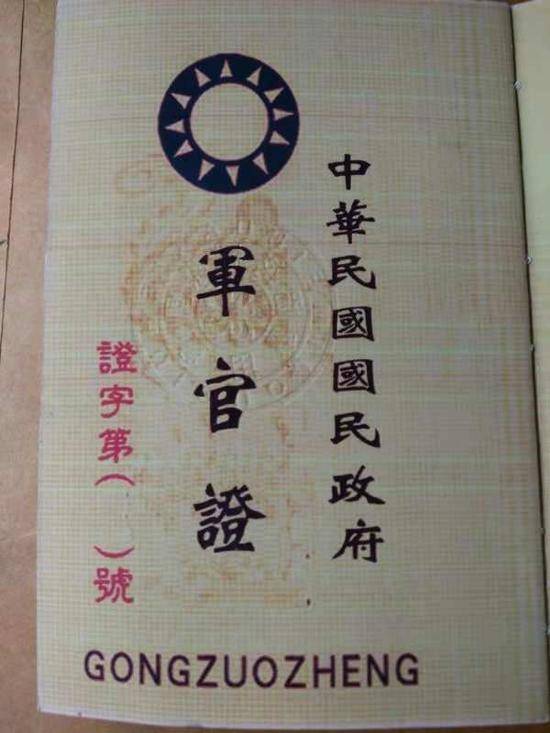 中華民國國民政府
軍官證
證字第(　)號
GONGZUOZHENG